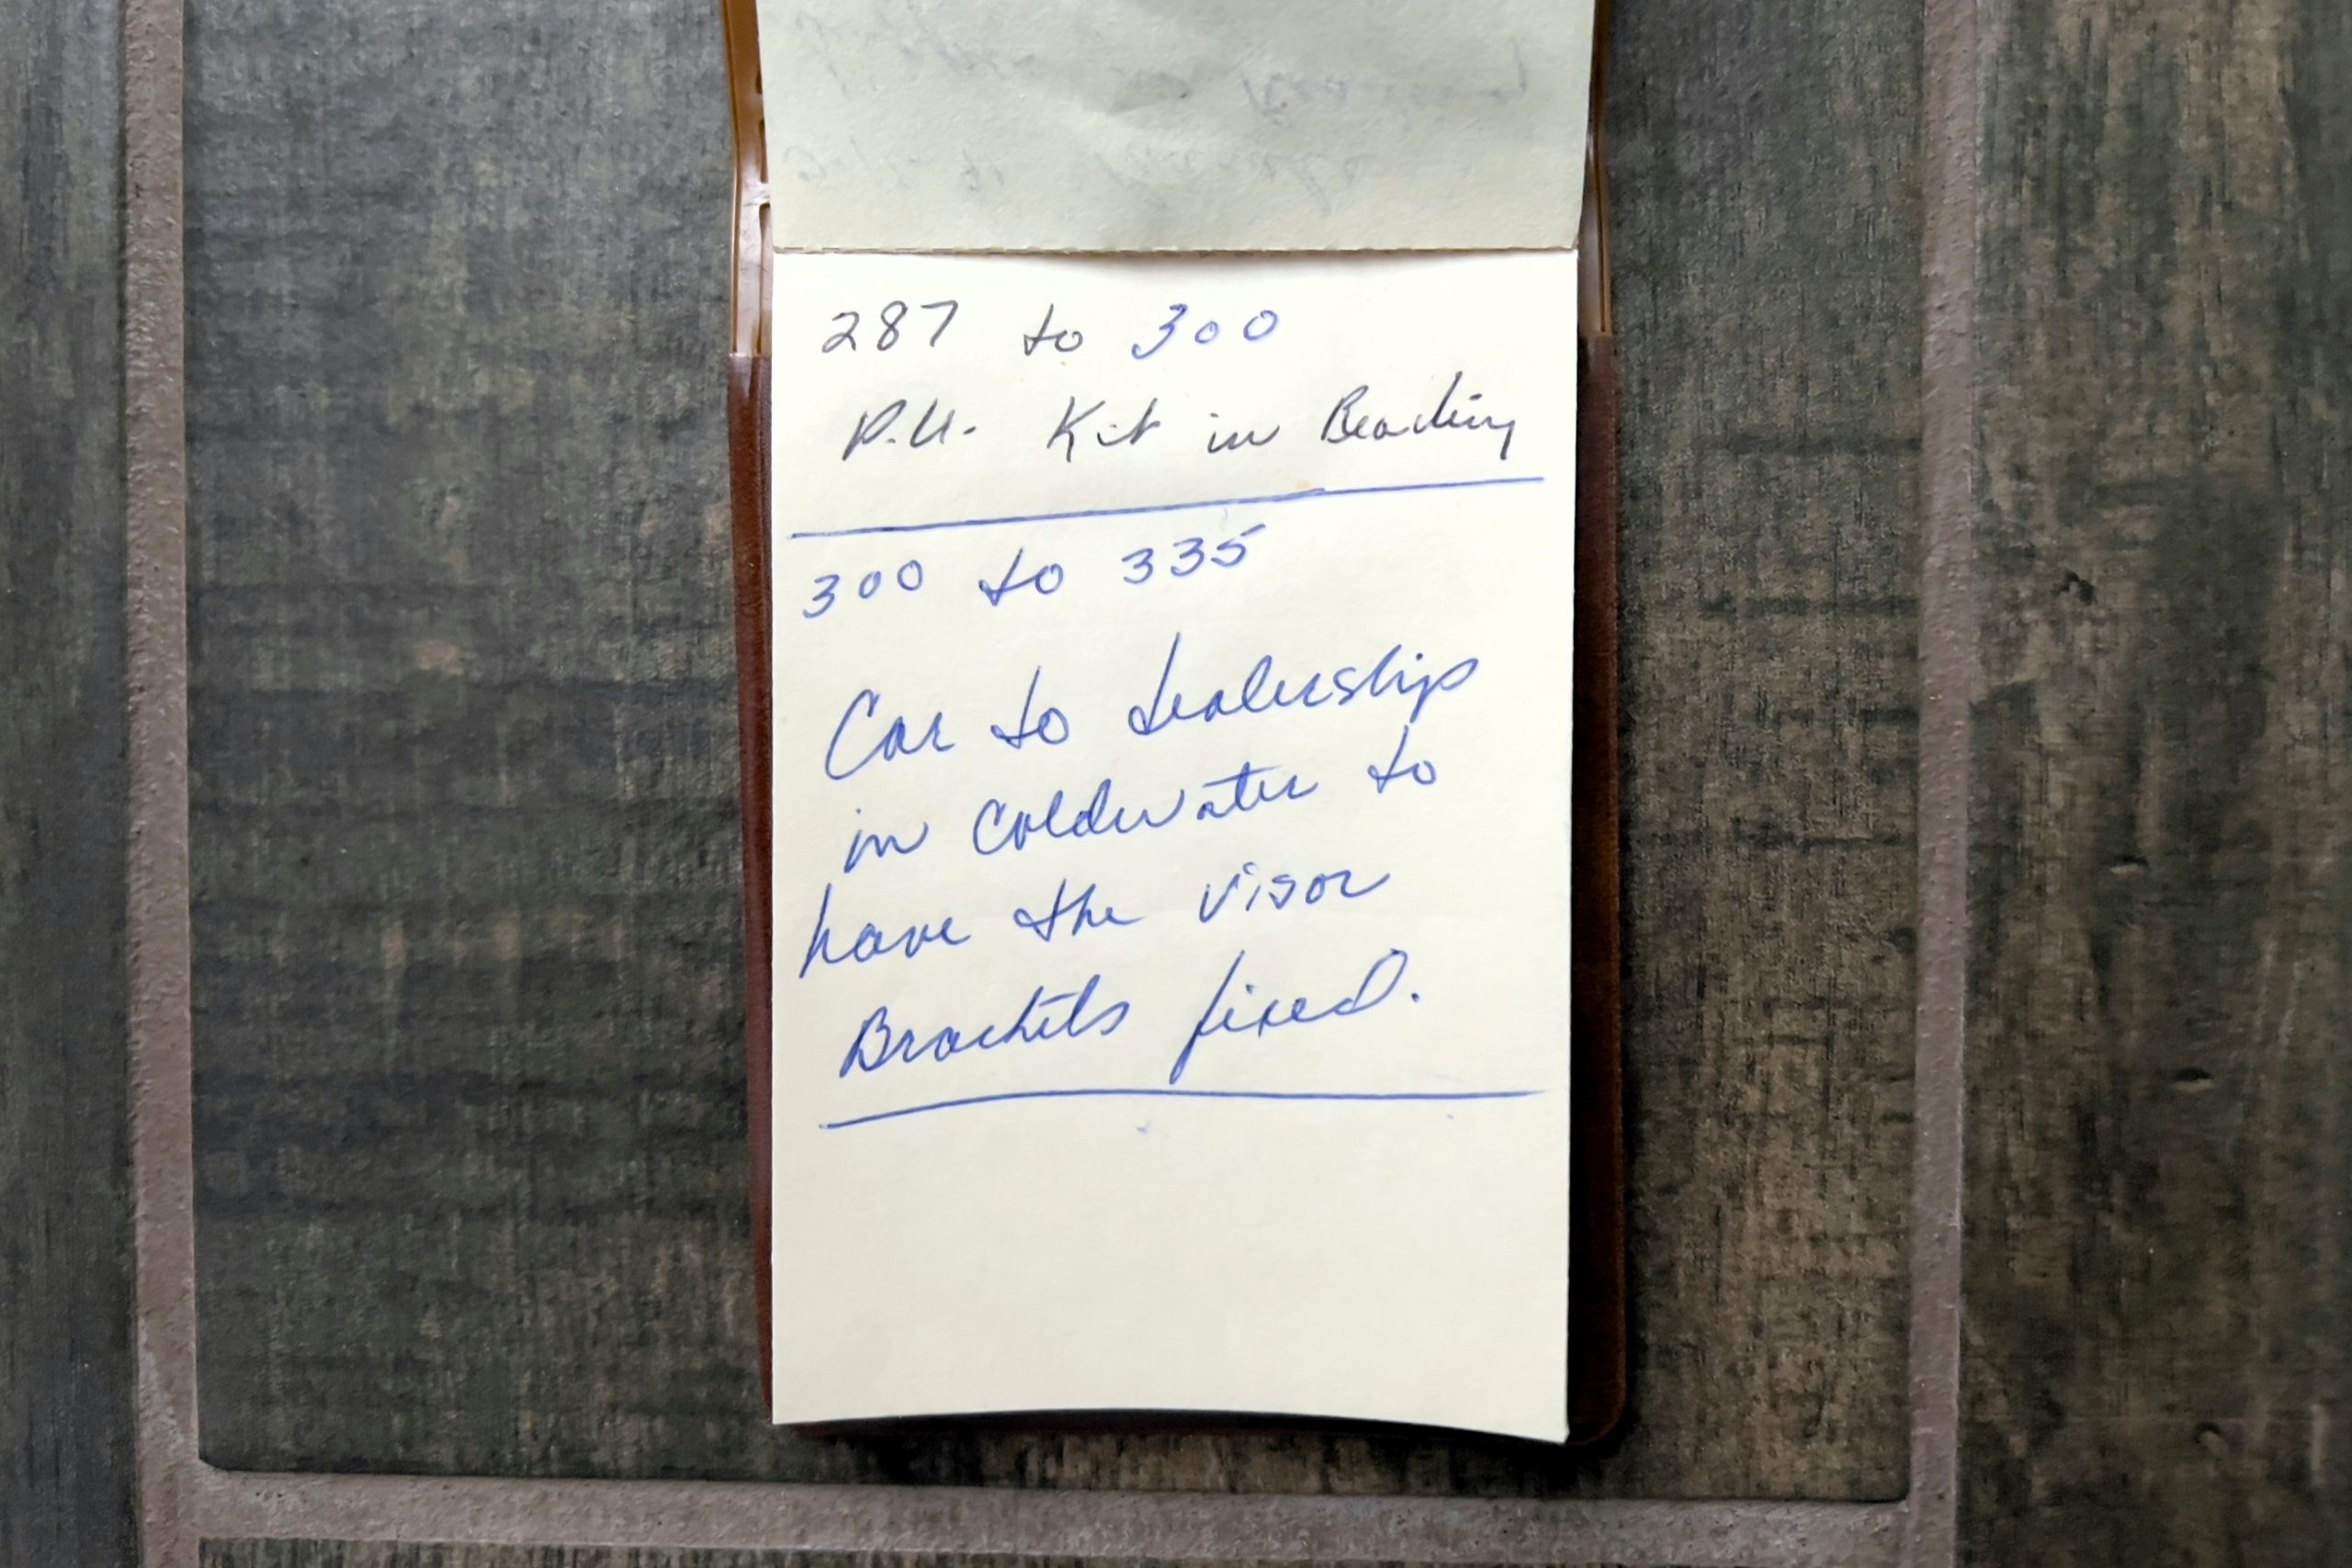 287 to 300
P.U. Kit in Reading
300 to 335
Car to dealership
in Coldwater to
have the visor
Brackets fixed.